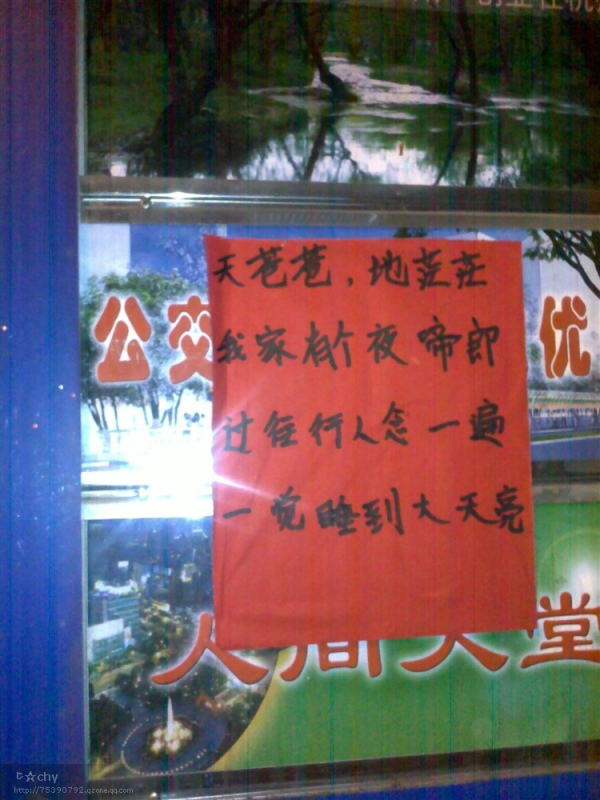 天苍苍，地茫茫
我家有个夜啼郎
过往行人念一遍
一觉睡到大天亮
公交
优
人间天堂
chy
http://75390792.qzone.qq.com